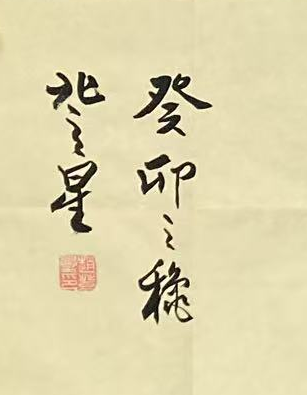 癸卯之秋
北之星